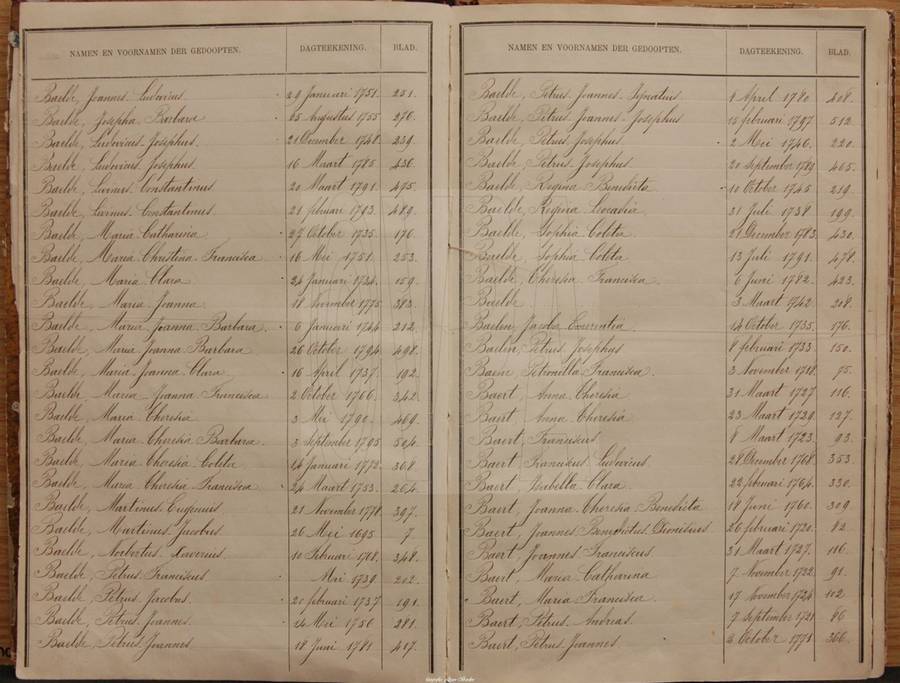 NAMEN EN VOORNAMEN DER GEDOOPTEN. DAGTEEKENING. BLAD.
Baelde, Joannes Ludovicus. 29 Januari 1751. 251.
Baelde, Josepha Barbara 25 Augustus 1755 276.
Baelde, Ludovicus Josephus. 21 December 1748. 239.
Baelde, Ludovicus Josephus. 16 Maart 1785 436.
Baelde, Livinus Constantinus 20 Maart 1791. 495.
Baelde, Livinus Constantinus. 21 februari 1793. 489.
Baelde, Maria Catharina 27 October 1735. 176.
Baelde, Maria Christina Francisca 16 Mei 1751. 253.
Baelde, Maria Clara 24 Januari 1734. 159.
Baelde, Maria Joanna 18 November 1775 383.
Baelde, Maria Joanna Barbara. 6 Januari 1744 212.
Baelde, Maria Joanna Barbara 26 October 1794 498.
Baelde, Maria Joanna Clara 16 April 1737. 192.
Baelde, Maria Joanna Francisca 2 October 1766. 342.
Baelde, Maria Theresia 3 Mei 1790. 469.
Baelde, Maria Theresia Barbara. 3 September 1795 504.
Baelde, Maria Theresia Coleta 14 Januari 1773. 368.
Baelde, Maria Theresia Francisca 24 Maart 1753. 264.
Baelde, Martinus Eugenius 21 November 1778. 397.
Baelde, Martinus Jacobus. 26 Mei 1695 7.
Baelde, Norbertus Xaverius 10 Februari 1768. 348.
Baelde, Petrus Franciscus Mei 1739. 202.
Baelde, Petrus Jacobus. 21 februari 1737 191.
Baelde, Petrus Joannes. 14 Mei 1756 281.
Baelde, Petrus Joannes 18 Juni 1781 417.
NAMEN EN VOORNAMEN DER GEDOOPTEN. DAGTEEKENING. BLAD.
Baelde, Petrus Joannes Ignatius 1 April 1780 408.
Baelde, Petrus Joannes Josephus 15 februari 1797 512.
Baelde, Petrus Josephus. 2 Mei 1746. 220.
Baelde Petrus Josephus. 20 September 1789 465.
Baelde, Regina Benedicta 10 October 1745 219.
Baelde, Regina Leocadia 31 Juli 1738. 199.
Baelde, Sophia Coleta 21 December 1783. 430.
Baelde, Sophia Coleta 13 Juli 1791. 478.
Baelde, Theresia Francisca 6 Juni 1782. 423.
Baelde 3 Maart 1742 208.
Baelen, Jacoba 14 October 1735. 176.
Baelen, Petrus Josephus 8 februari 1733. 150.
Baene Petronilla Francisca. 3 November 1718. 75.
Baert, Anna Theresia 31 Maart 1727. 116.
Baert Anna Theresia 23 Maart 1729. 127.
Baert, Franciscus 8 Maart 1723. 93.
Baert Franciscus Ludovicus. 28 December 1768. 353.
Baert, Isabella Clara. 22 februari 1764. 330.
Baert, Joanna Theresia Benedicta 18 Juni 1760. 309
Baert, Joannes Benedictus Dionisius 26 februari 1720. 82.
Baert Joannes Franciscus 31 Maart 1727. 116.
Baert, Maria Catharina 7 November 1732. 91.
Baert, Maria Francisca. 17 November 1724 102
Baert, Petrus Andreas. 7 September 1721 86
Baert, Petrus Joannes. 3 October 1771 366.